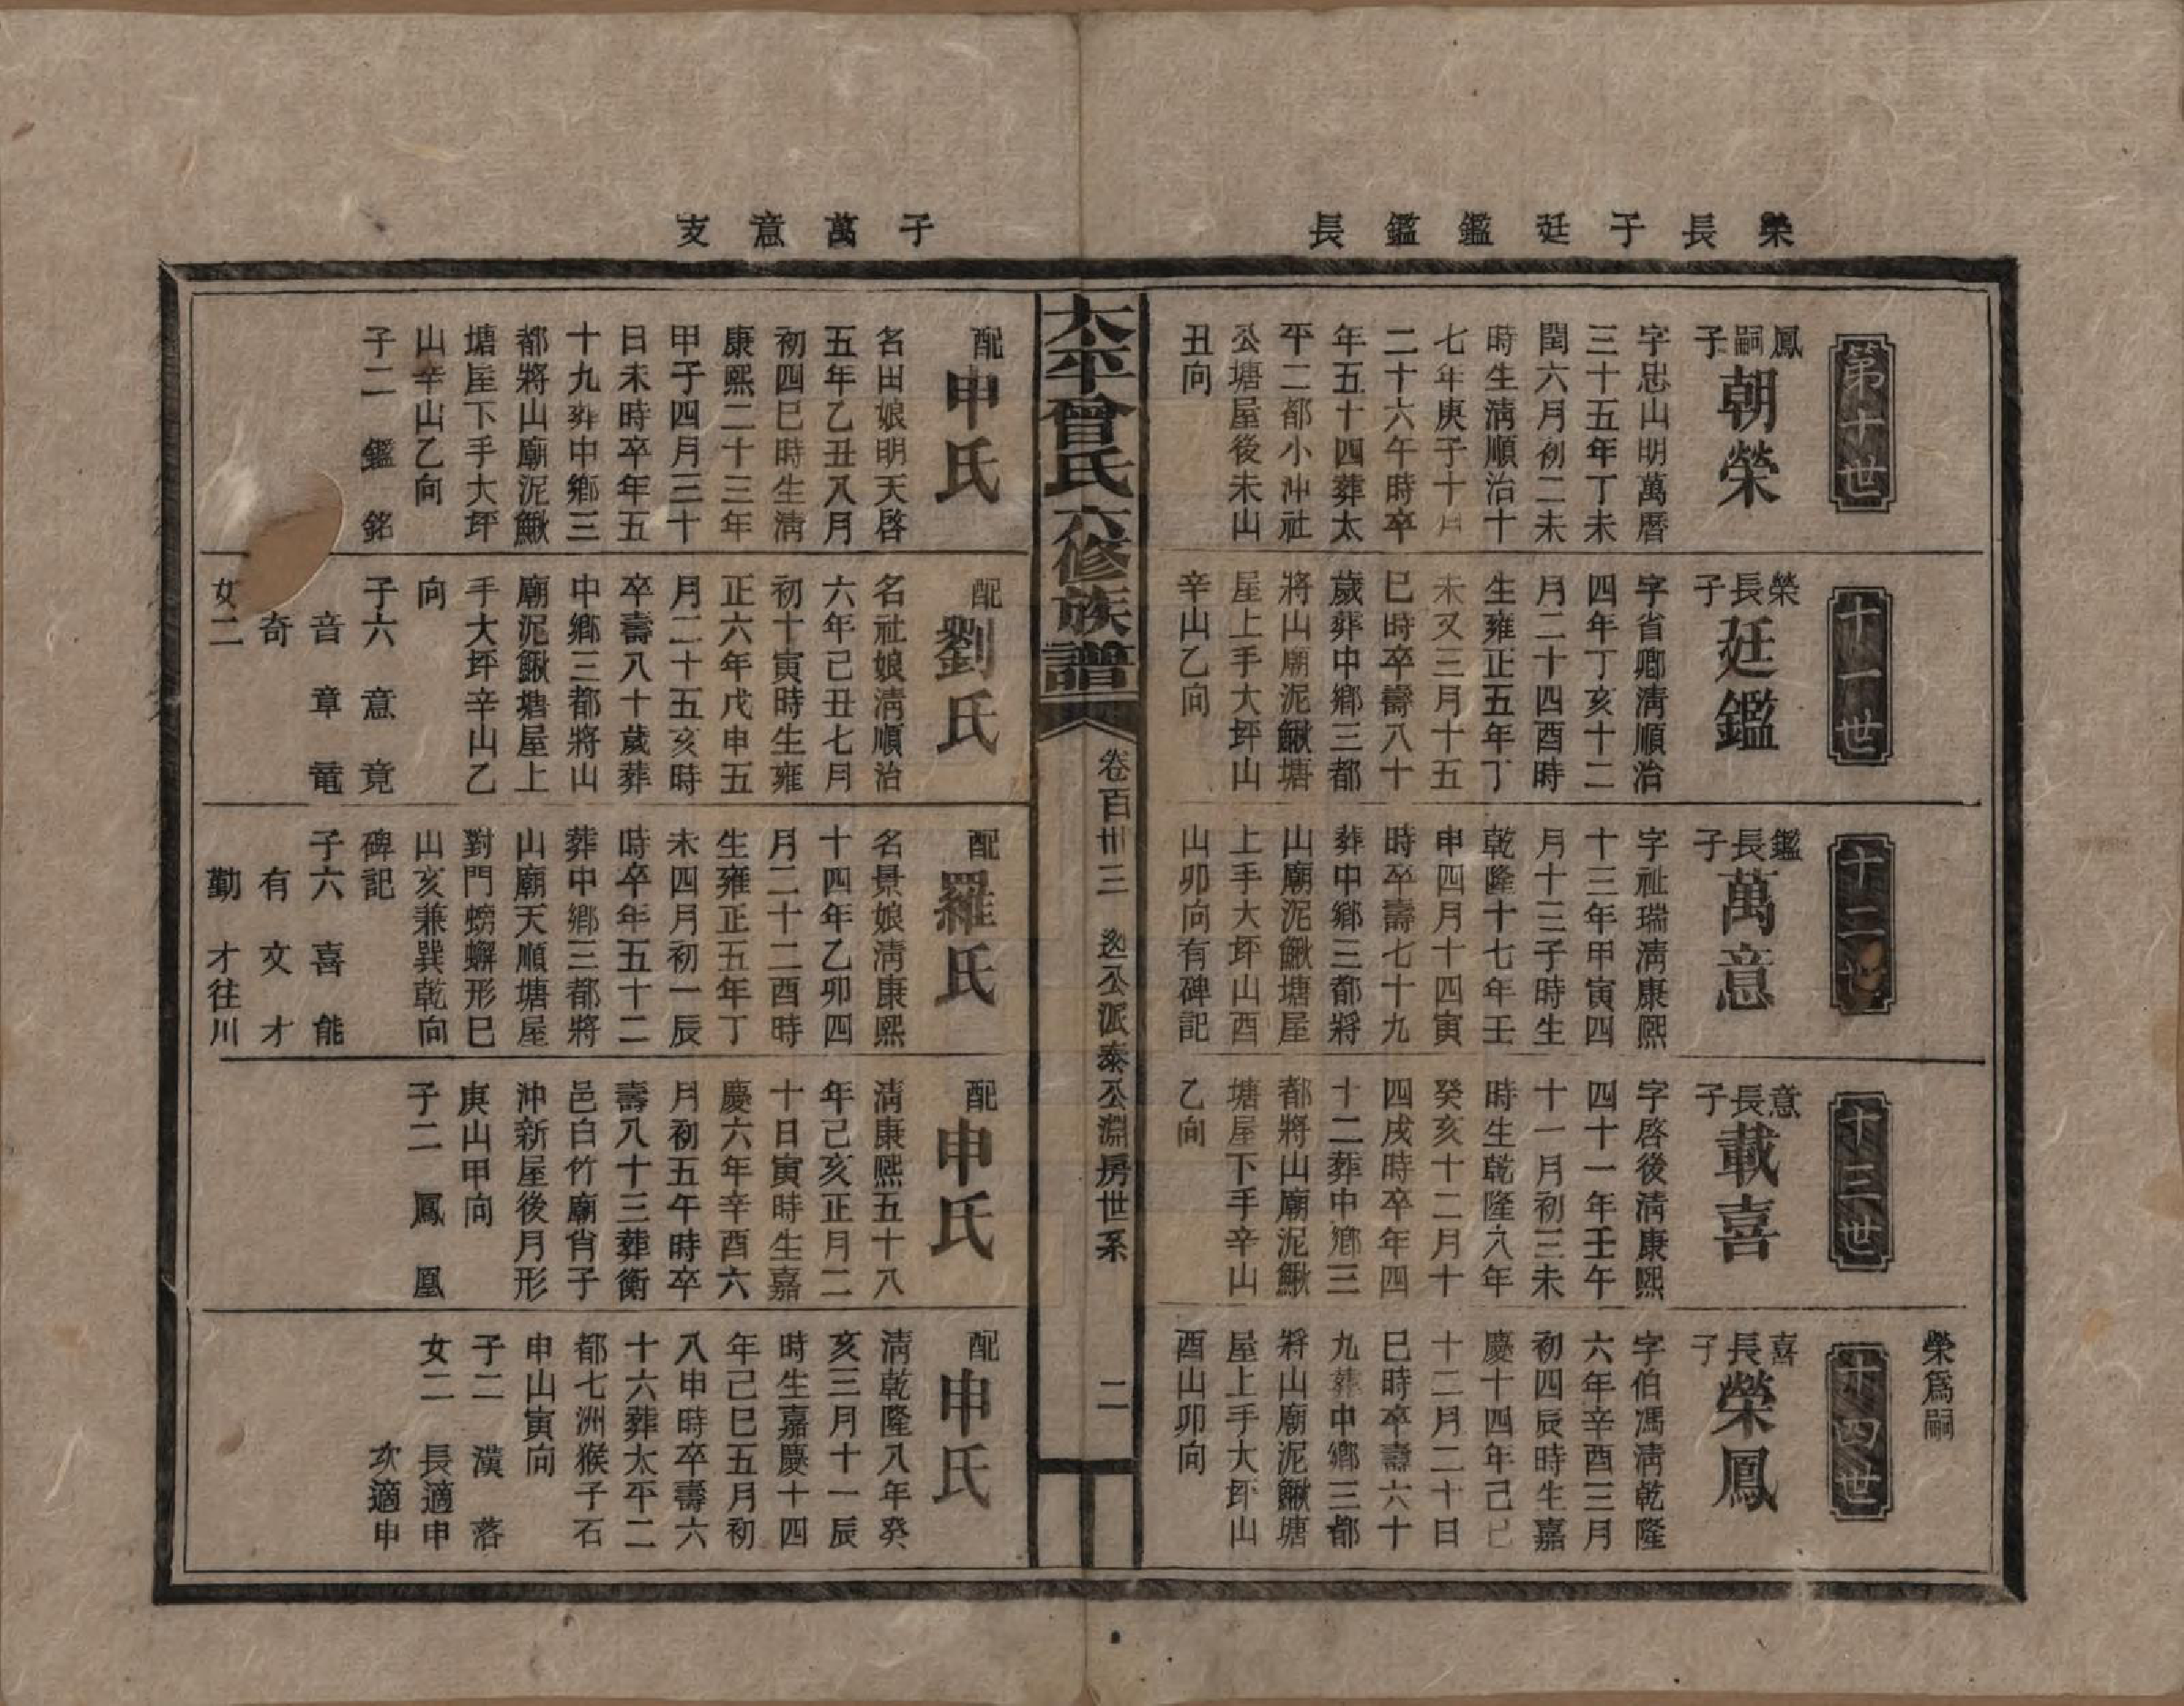 榮長子廷鑑鑑長
子萬意支
第十世
鳳嗣子
朝榮
字忠山明萬曆
三十五年丁未
閏六月初二未
時生淸順治十
七年庚子十月
二十六午時卒
年五十四葬太
平二都小冲社
公塘屋後未山
丑向
配
申氏
名田娘明天啓
五年乙丑八月
初四巳時生淸
康熙二十三年
甲子四月三十
日未時卒年五
十九葬中鄉三
都將山廟泥鰍
塘屋下手大坪
山辛山乙向
子二 鑑 銘
十一世
榮長子
廷鑑
字省卿淸順治
四年丁亥十二
月二十四酉時
生雍正五年丁
未又三月十五
巳時卒壽八十
歲葬中鄉三都
將山廟泥鰍塘
屋上手大坪山
辛山乙向
配
劉氏
名社娘淸順治
六年己丑七月
初十寅時生雍
正六年戊申五
月二十五亥時
卒壽八十歲葬
中鄉三都將山
廟泥鰍塘屋上
手大坪辛山乙
向
子六 意 竟
音 章 竜
奇
女二
十二世
鑑長子
萬意
字祉瑞淸康熙
十三年甲寅四
月十三子時生
乾隆十七年壬
申四月十四寅
時卒壽七十九
葬中鄉三都將
山廟泥鰍塘屋
上手大坪山酉
山卯向有碑記
配
羅氏
名景娘淸康熙
十四年乙卯四
月二十二酉時
生雍正五年丁
未四月初一辰
時卒年五十二
葬中鄉三都將
山廟天順塘屋
對門螃蠏形巳
山亥兼巽乾向
碑記
子六 喜 能
有 文 才
勤 才往川
十三世
意長子
載喜
字啓後淸康熙
四十一年壬午
十一月初三未
時生乾隆八年
癸亥十二月十
四戌時卒年四
十二葬中鄉三
都將山廟泥鰍
塘屋下手辛山
乙向
配
申氏
淸康熙五十八
年己亥正月二
十日寅時生嘉
慶六年辛酉六
月初五午時卒
壽八十三葬衡
邑白竹廟肖子
沖新屋後月形
庚山甲向
子二 鳳 凰
榮爲嗣
十四世
喜長子
榮鳳
字伯馮淸乾隆
六年辛酉三月
初四辰時生嘉
慶十四年己巳
十二月二十日
巳時卒壽六十
九葬中鄉三都
將山廟泥鰍塘
屋上手大坏山
酉山卯向
配
申氏
淸乾隆八年癸
亥三月十一辰
時生嘉慶十四
年己巳五月初
八申時卒壽六
十六葬太平二
都七洲猴子石
申山寅向
子二 漢 落
女二 長適申
次適申
太平曾氏六修族譜
卷百卅三 迯公派泰公淵房世系
二